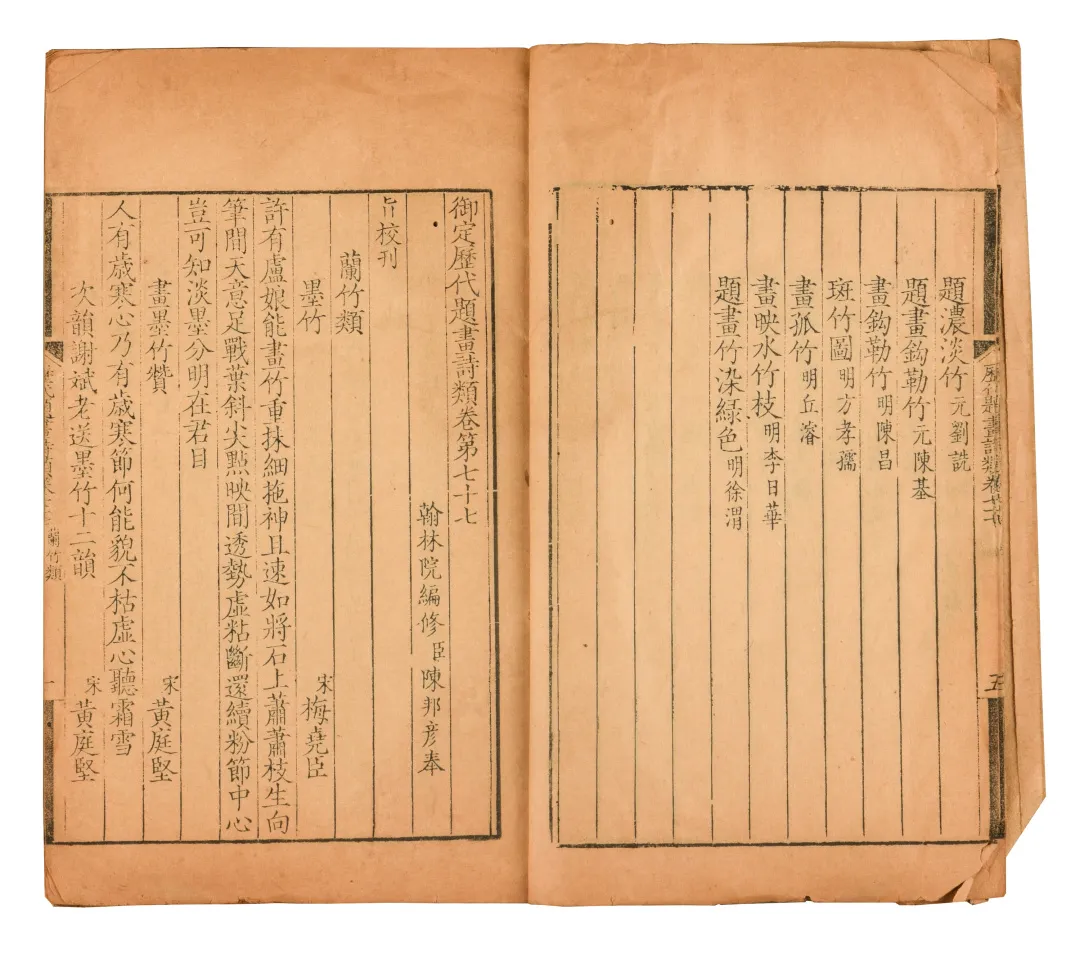 題濃淡竹 元劉詵
題畫鈎勒竹 元陳基
畫鈎勒竹 明陳昌
斑竹圖 明方孝孺
畫孤竹 明丘濬
畫映水竹枝 明李日華
題畫竹染綠色 明徐渭
五
御定歷代題畫詩類卷第七十七
翰林院編修臣陳邦彥奉
旨校刊
蘭竹類
墨竹 宋梅堯臣
許有盧娘能畫竹重抹細拖神且速如將石上蕭蕭枝生向
筆間天意足戰葉斜尖點映間透勢虛粘斷還續粉節中心
豈可知淡墨分明在君目
畫墨竹贊 宋黃庭堅
人有歲寒心乃有歲寒節何能貌不枯虛心聽霜雪
次韻謝斌老送墨竹十二韻 宋黃庭堅
蘭竹類
一